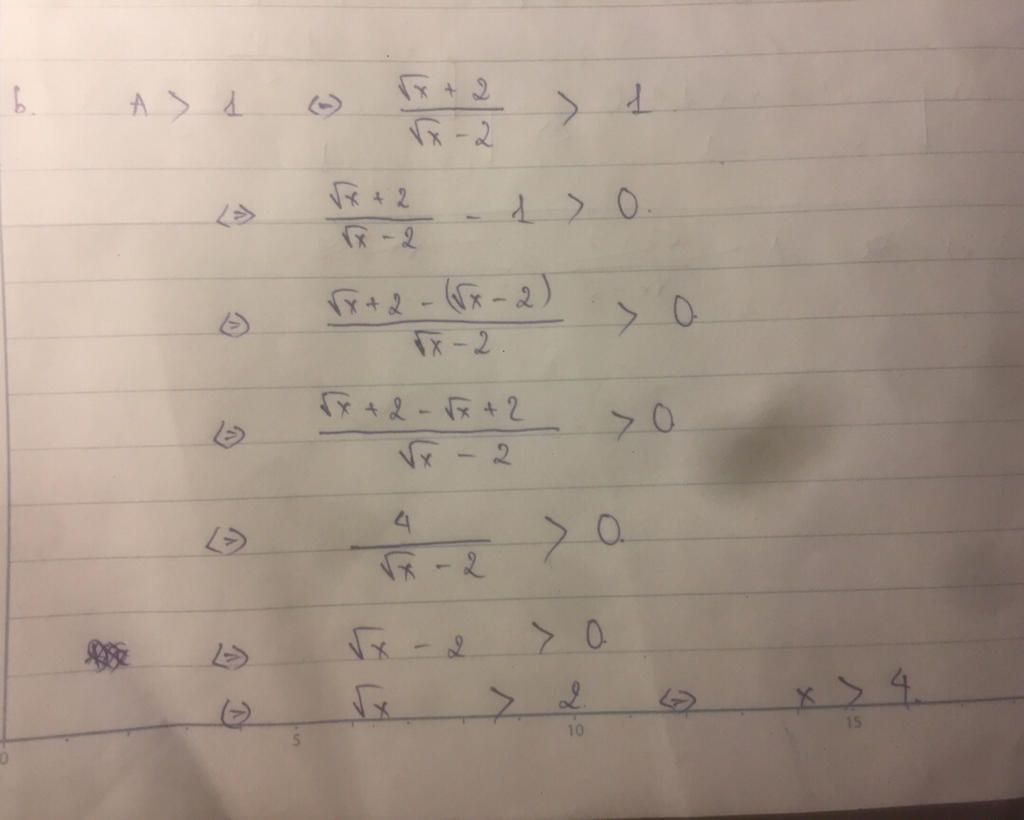 b. A > 1 <=> (√x + 2)/(√x - 2) > 1
<=> (√x + 2)/(√x - 2) - 1 > 0.
<=> (√x + 2 - (√x - 2))/(√x - 2) > 0.
<=> (√x + 2 - √x + 2)/(√x - 2) > 0
<=> 4/(√x - 2) > 0.
<=> √x - 2 > 0.
<=> √x > 2. <=> x > 4.
0 5 10 15